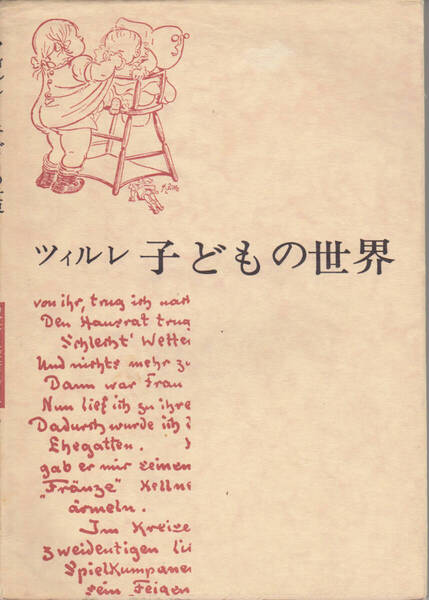 ツィルレ 子どもの世界
von ihr, trug ich nach
Den Hausrat trug
Schlecht' Wetter
Und nichts mehr zu
Dann war Frau
Nun lief ich zu ihre
Dadurch wurde ich i
Ehegatten.
gab er mir seinen
"Fränze" Kellne
ärmeln.
Im Kreise
zweideutigen lic
Spielkumpane
sein Feigen